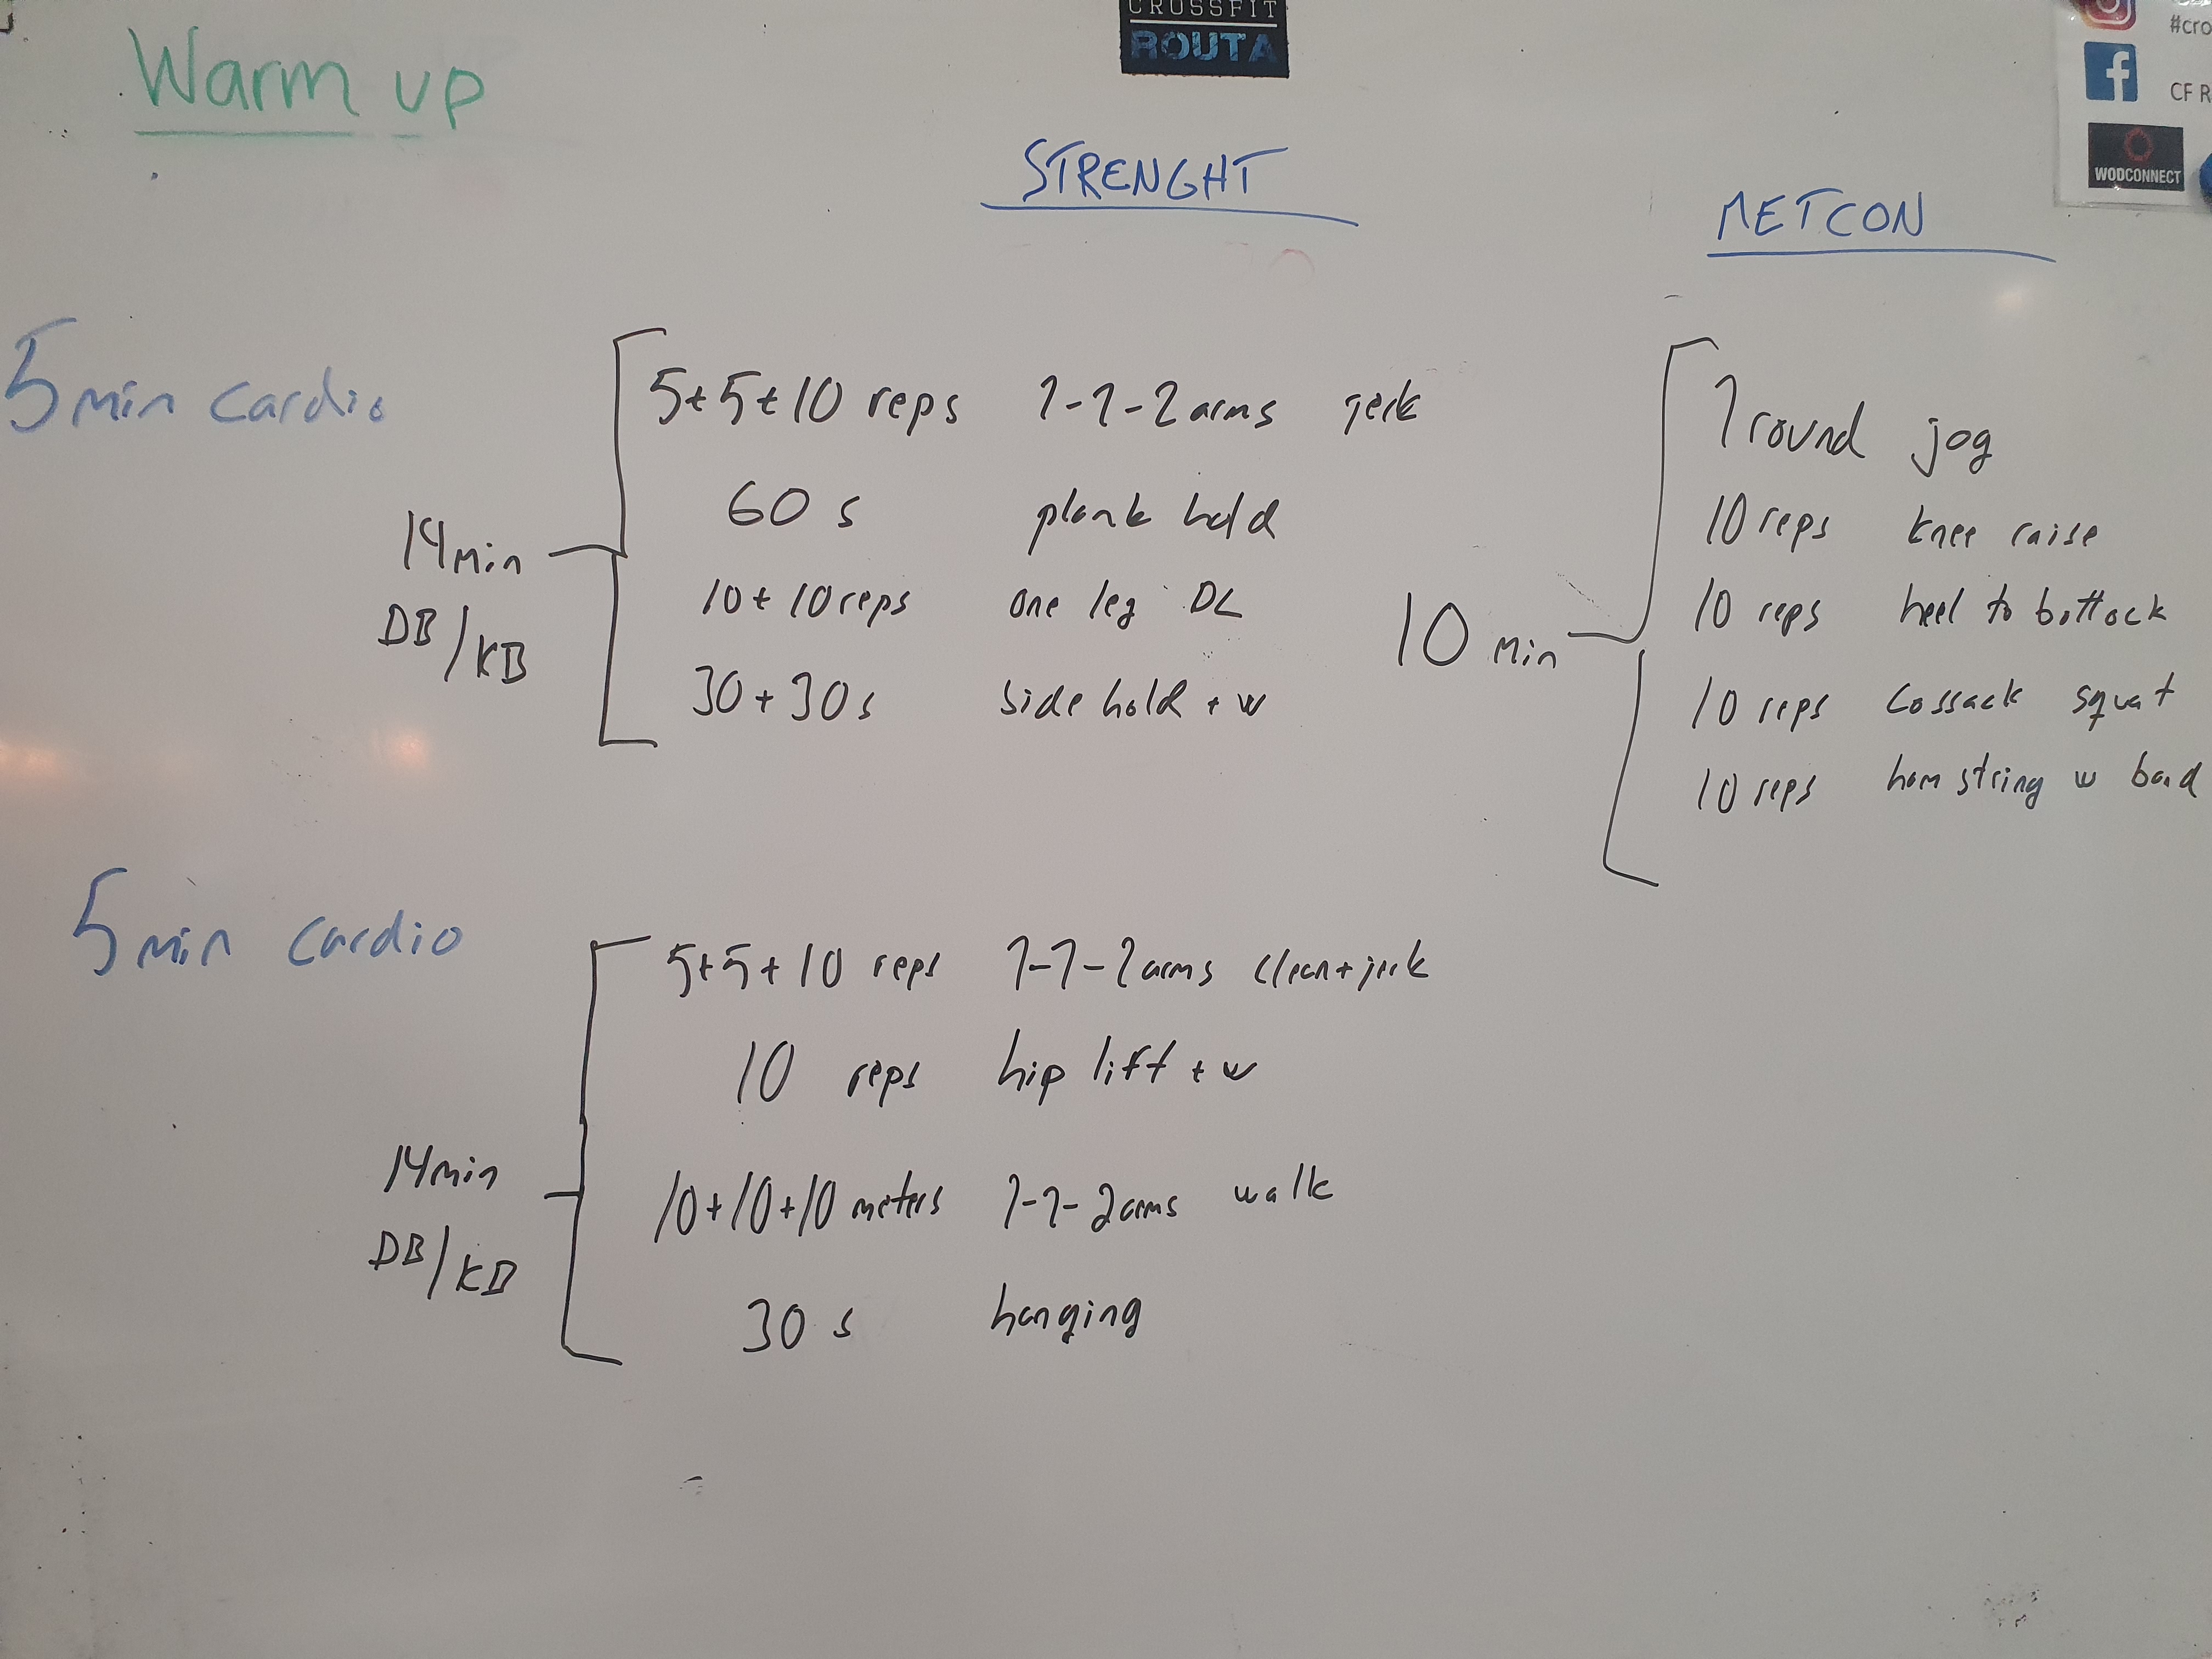 CROSSFIT
ROUTA
#cro
CF R
WODCONNECT
Warm up
STRENGHT
METCON
5 min cardio
14 min
DB/KB
5+5+10 reps 1-1-2 arms jerk
60 s plank hold
10+10 reps one leg DL
30+30s side hold + w
10 min
1 round jog
10 reps knee raise
10 reps heel to buttock
10 reps cossack squat
10 reps hamstring w band
5 min cardio
14 min
DB/KB
5+5+10 reps 1-1-2 arms clean+jerk
10 reps hip lift + w
10+10+10 meters 1-1-2 arms walk
30 s hanging